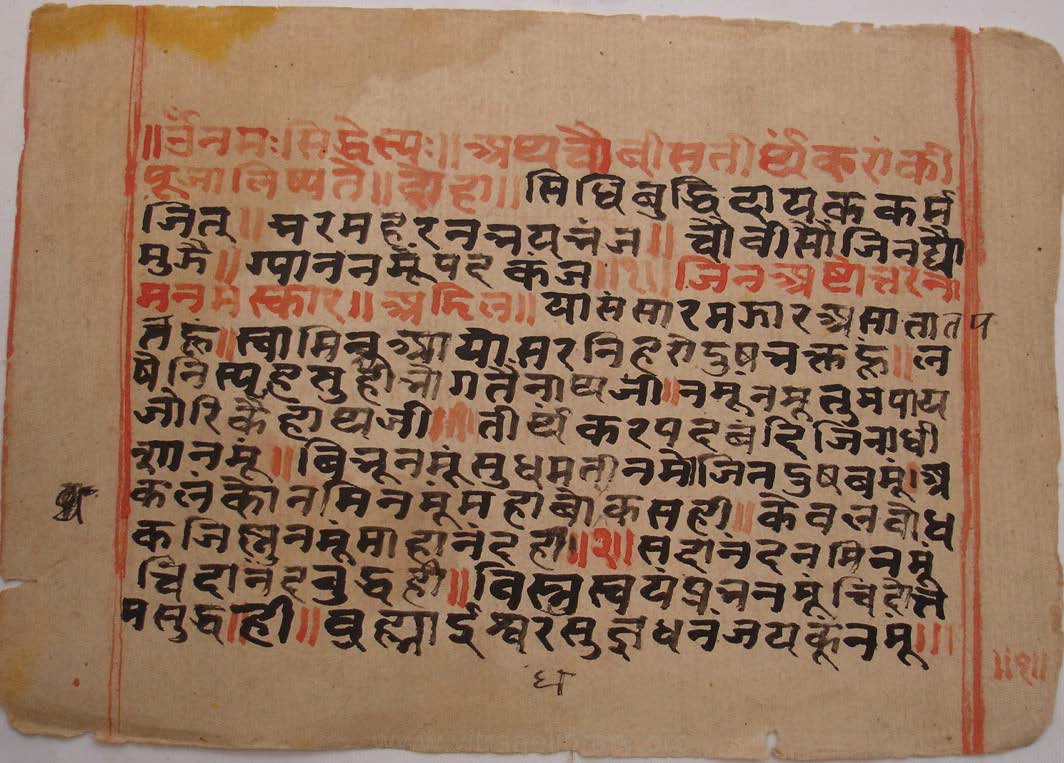 ॥ॐनमःसिद्धेभ्यः॥अथचौबीसतीर्थंकरोंकी
पूजालिष्यते॥दोहा॥सिधिबुद्धिदायककर्म
जित॥भरमहरनभयभंज॥चौवीसौंजिनद्यौ
मुझै॥ग्याननमूंपदकंज॥१॥जिनअष्टोत्तरना
मनमस्कार॥अडिल॥यासंसारमझारअसातातप
स्वामि आयोसरनिहरोदुष ॥ल
षेनिस्पृहसुही नाथजी॥नमूनमूतुमपाय
जोरिकैहाथजी॥१॥तीर्थंकरपदबंदिजिनाधी
शानमूं॥बिभूनमूंसुधमतीनमोजिनवृषबमूं॥अ
कलंकौनमिनमूंमहाबोकसही॥केवलबोध
कजिस्नुनमूंमाहानंदही॥२॥सदानंदनमिनमूं
चिदानंदबुद्धही॥विस्नु नमूंचिदोत्त
मसुद्धही॥ब्रह्माईश्वरसु धनंजयकूंनमूं॥
॥१॥